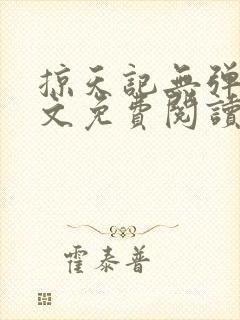 掠天記無彈
文免費閱讀
霍泰普